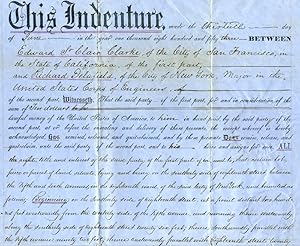 This Indenture, made the thirtieth day of
June in the year one thousand eight hundred and fifty three BETWEEN
Edward St Clair Clarke of the City of San Francisco, in
the State of California of the first part,
and Richard Delafield, of the City of New York, Major in the
United States Corps of Engineers, of
of the second part, Witnesseth, That the said party of the first part, for and in consideration of the
sum of One dollar
lawful money of the United States of America to him in hand paid by the said party of the
second part, at or before the ensealing and delivery of these presents, the receipt whereof is hereby
acknowledged, has remised, released, and quitclaimed, and by these presents Does remise, release, and
quitclaim, unto the said party of the second part, and to his heirs and assigns for ever, ALL
the right, title and interest of the said party of the first part of, in and to, that certain lot,
piece or parcel of land situate, lying and being on the southerly side of eighteenth street between
the fifth and sixth avenues in the eighteenth ward, of the said City of New York, and bounded as
follows, Beginning on the southerly side of eighteenth street, at a point distant two hundred
feet westwardly from the westerly side of the fifth avenue, and running thence westwardly
along the southerly side of eighteenth street twenty six feet; thence southwardly parallel
with the fifth avenue ninety two feet; thence eastwardly parallel with eighteenth street